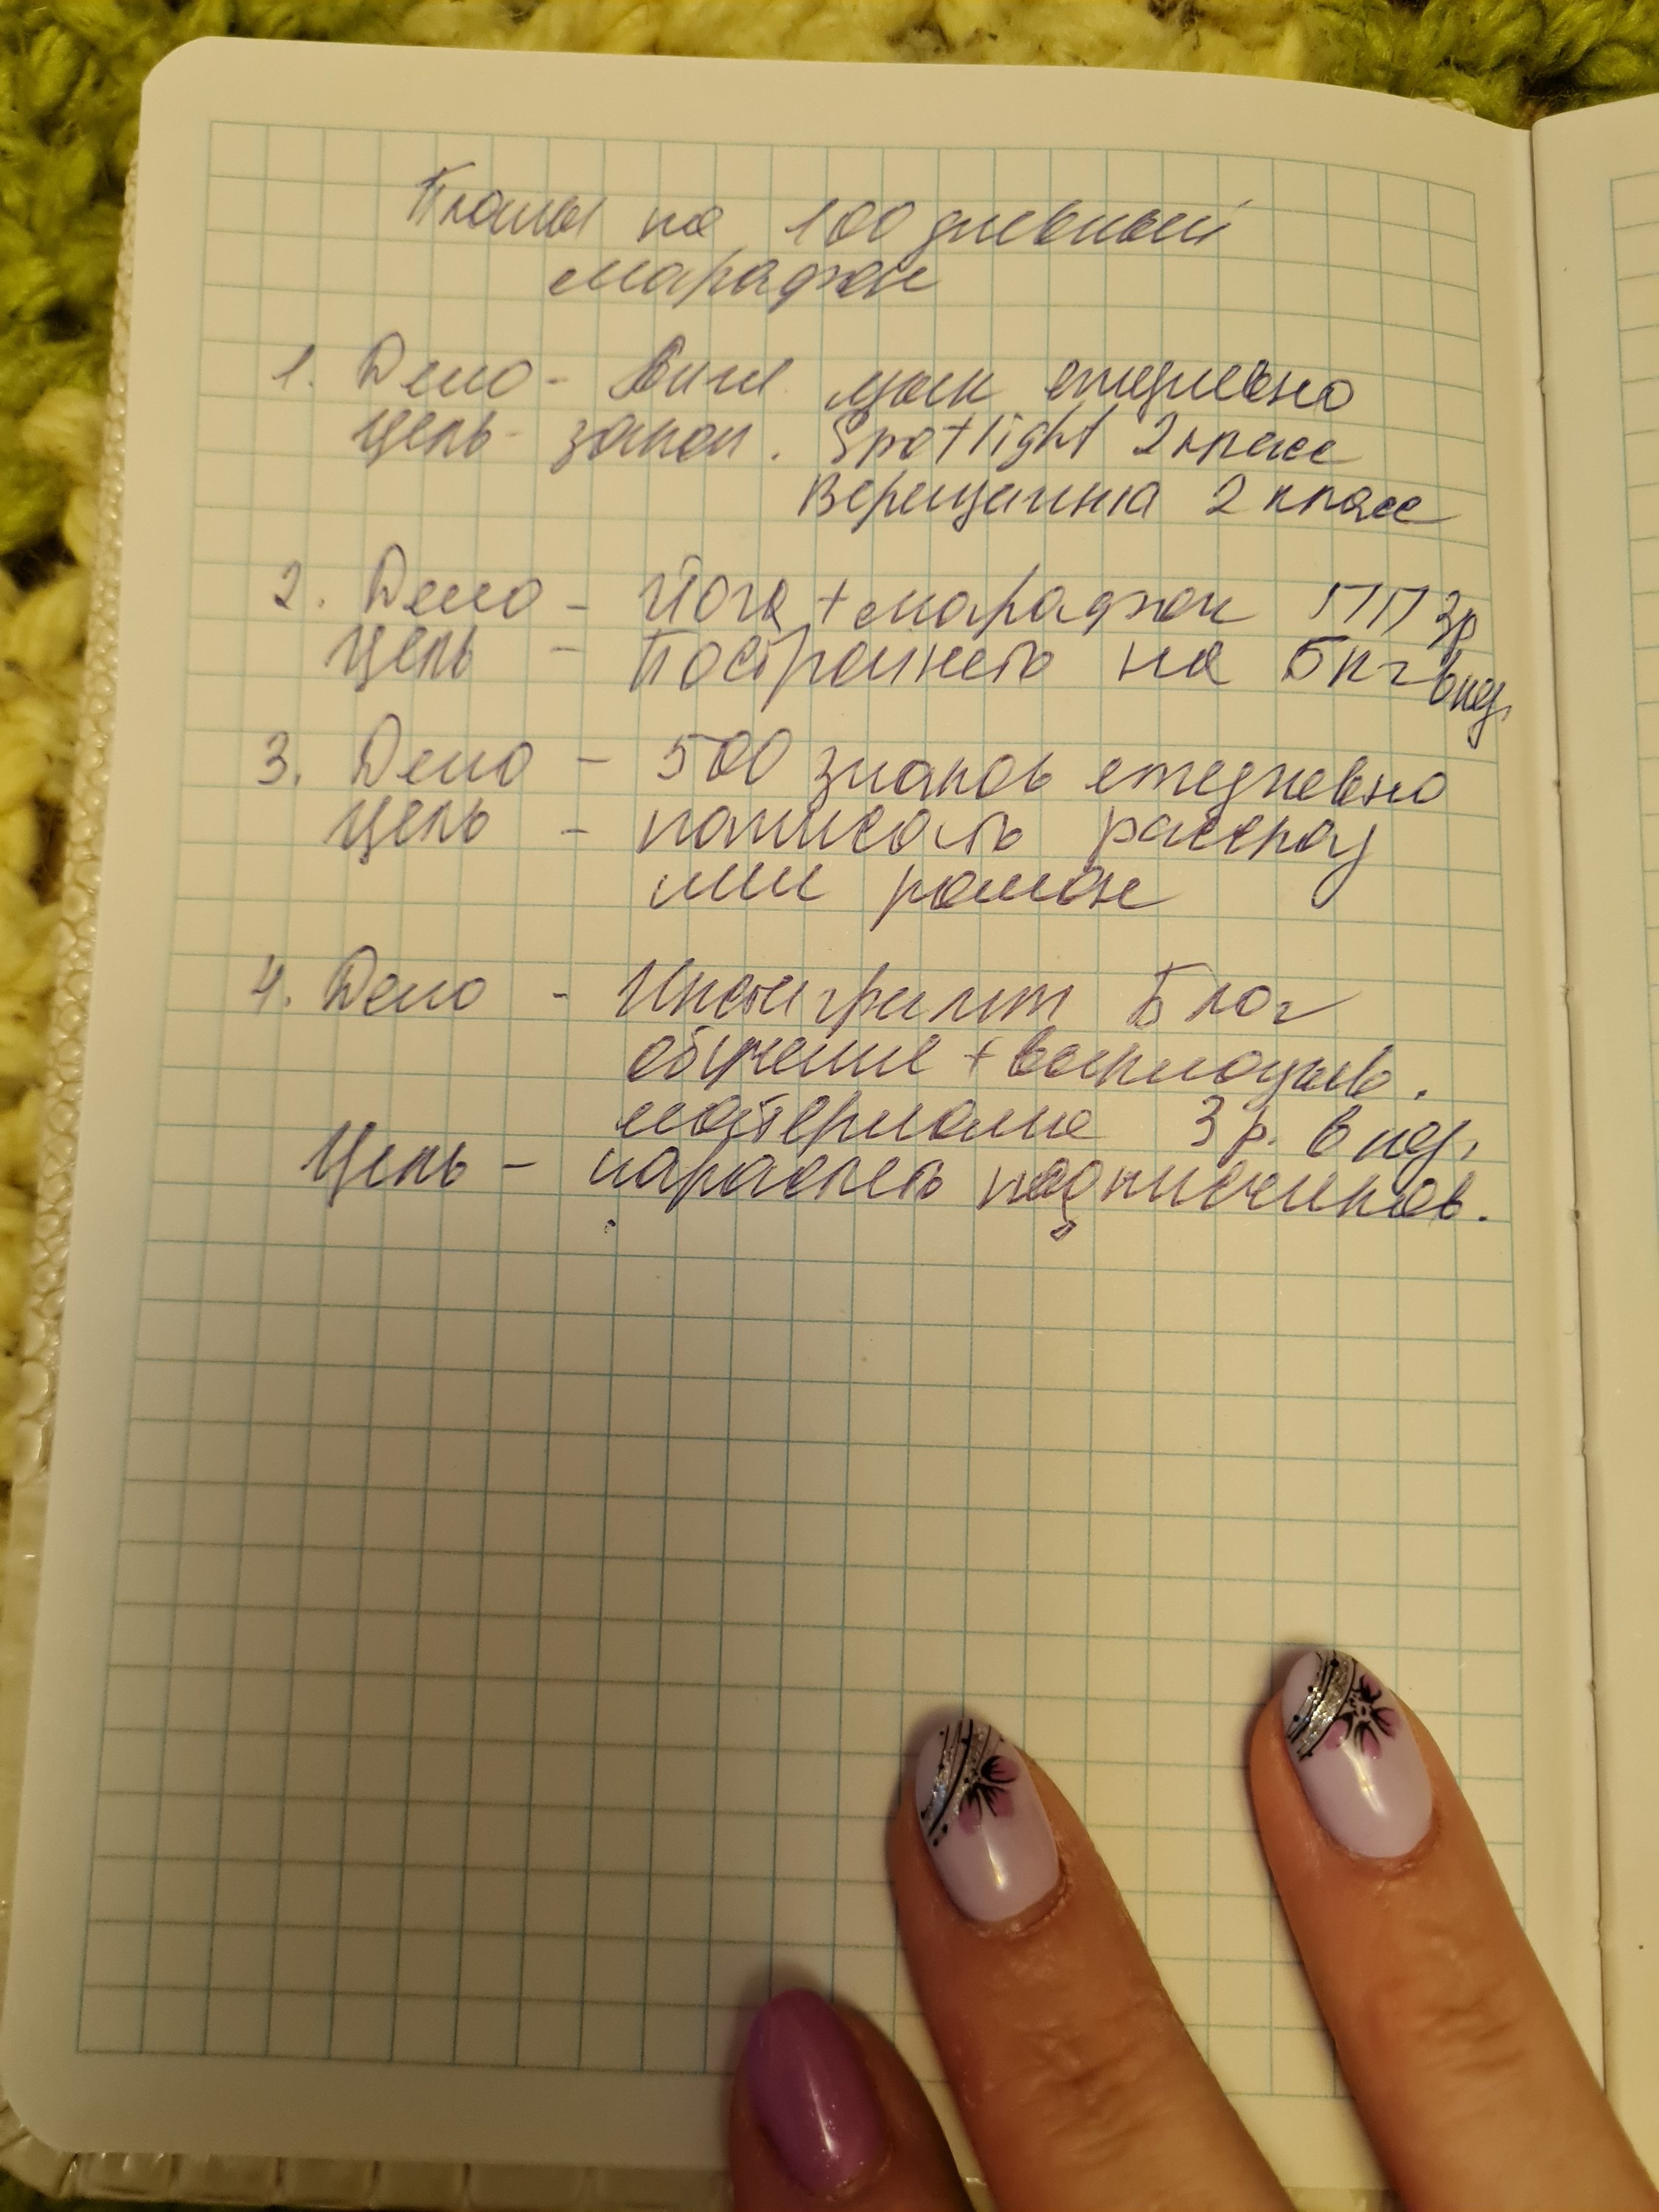 Планы на 100 дневный
марафон
1. Дело - Англ. язык ежедневно
Цель - закон. Spotlight 2 класс
Верещагина 2 класс
2. Дело - Йога + марафон ПП 3р
Цель - Постройнеть на 5кг в нед.
3. Дело - 500 знаков ежедневно
Цель - написать рассказ
или роман
4. Дело - Инстаграмм Блог
обучение + выкладыв.
материала 3 р. в нед.
Цель - нарастить подписчиков.